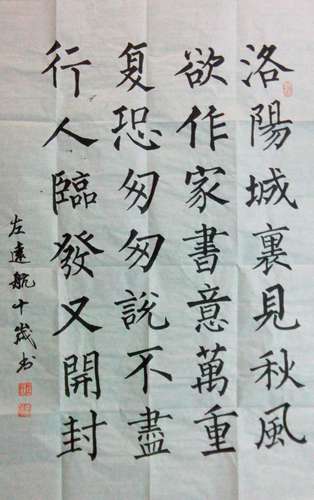 洛陽城裏見秋風
欲作家書意萬重
复恐匆匆說不盡
行人臨發又開封
左遠航十歲书